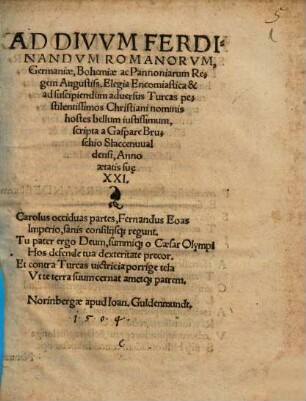 5
AD DIVVM FERDI-
NANDVM ROMANORVM,
Germaniæ, Bohemiæ ac Pannoniarum Re-
gem Augustiss. Elegia Encomiastica &
ad suscipiendum aduersus Turcas pe-
stilentissimos Christiani nominis
hostes bellum iustissimum,
scripta a Gaspare Bru-
schio Slaccenuual
densi, Anno
ætatis suę
XXI.
Carolus occiduas partes, Fernandus Eoas
Imperio, sanis consilijsq́; regunt.
Tu pater ergo Deum, summiq́; o Cæsar Olympi
Hos defende tua dexteritate precor.
Et contra Turcas uictricia porrige tela
Vt te terra suum cernat ametq́; patrem.
Norinbergæ apud Ioan. Guldenmundt.
1504.
C